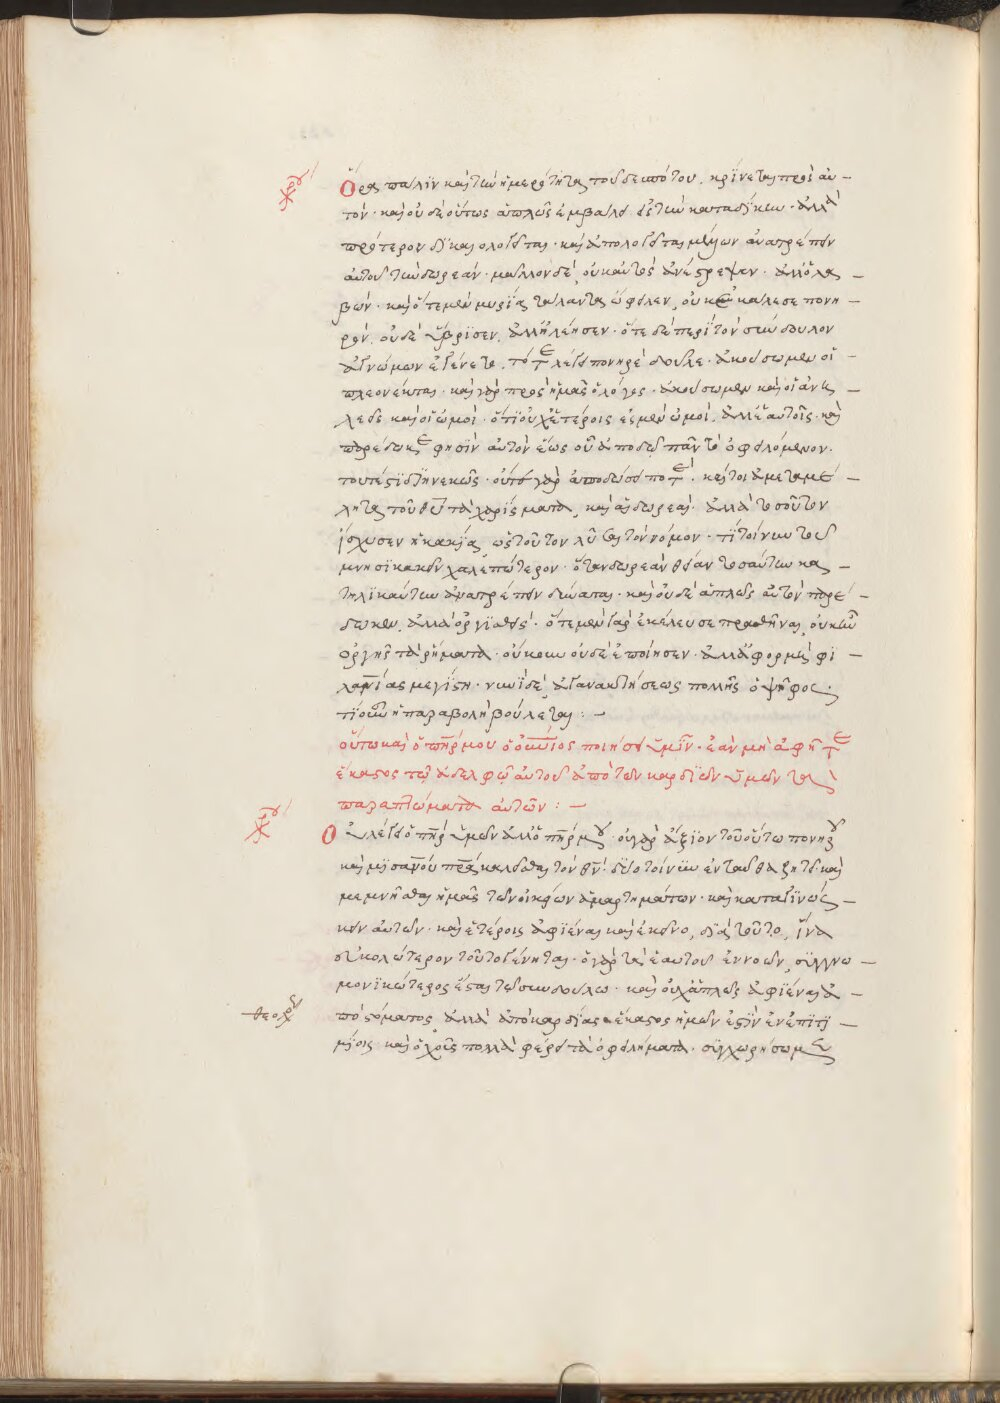 χρυ
Ὅρα πάλιν καὶ τὴν ἡμερότητα τοῦ δεσπότου. κρίνεται πρὸς αὐ –
τόν · καὶ οὐδὲ οὕτως ἁπλῶς ἐμβάλλει εἰς τὴν καταδίκην · ἀλλὰ
πρότερον δικαιολογεῖται · καὶ ἀπολογεῖται μέλλων ἀνατρέπειν
αὐτοῦ τὴν δωρεάν · μᾶλλον δὲ, οὐκ αὐτὸς ἀνέτρεψεν · ἀλλ' ὁ λα –
βών · καὶ ὅτε μὲν μυρία τάλαντα ὤφειλεν, οὐκ ἐκάλεσε πονη –
ρόν. οὐδὲ ὕβρισεν, ἀλλ' ἠλέησεν · ὅτε δὲ περὶ τὸν σύνδουλον
ἀγνώμων ἐγένετο, τότε λέγει πονηρὲ δοῦλε · ἀκούσωμεν οἱ –
πλεονέκται · καὶ γὰρ πρὸς ἡμᾶς ὁ λόγος · ἀκούσωμεν καὶ οἱ ἀνη –
λεεῖς καὶ οἱ ὠμοί · ὅτι οὐχ ἑτέροις ἐσμὲν ὠμοί, ἀλλ' ἑαυτοῖς · καὶ
παρέδωκε φησὶν αὐτὸν ἕως οὗ ἀποδῷ πᾶν τὸ ὀφειλόμενον.
τουτέστι διηνεκῶς · οὔτε γὰρ ἀποδώσει ποτέ. καίτοι ἀμεταμέ –
λητα τοῦ θυ τὰ χαρίσματα, καὶ αἱ δωρεαί · ἀλλὰ τοσοῦτον
ἴσχυσεν ἡ κακία, ὡς τοῦτον λῦσαι τὸν νόμον · τί τοίνυν τοῦ
μνησικακεῖν χαλεπώτερον · ὅταν δωρεὰν θείαν τοσαύτην κα –
τηλικαύτην ἀνατρέπειν δύναται · καὶ οὐδὲ ἁπλῶς αὐτὸν παρέ –
δωκεν, ἀλλὰ ὀργισθείς · ὅτε μὲν γὰρ ἐκέλευσε πραθῆναι, οὐκ ἦν
ὀργῆς τὰ ῥήματα · οὔκουν οὐδὲ ἐποίησεν · ἀλλ' ἀφορμὴ φι –
λανίας μεγίστη · νυνὶ δὲ, ἀγανακτήσεως πολλῆς ὁ ψῆφος ·
τί οὖν ἡ παραβολὴ βούλεται : –
οὕτω καὶ ὁ πηρ μου ὁ οὐνιος ποιήσει ὑμῖν · ἐὰν μὴ ἀφῆτε
ἕκαστος τῷ ἀδελφῷ αὐτοῦ ἀπὸ τῶν καρδιῶν ὑμῶν τὰ
παραπτώματα αὐτῶν : –
χρυ
Οὐ λέγει ὁ πηρ ὑμῶν ἀλλ' ὁ πηρ μου · οὐ γὰρ ἄξιον τοῦ οὕτω πονηροῦ
καὶ μισανου πρα καλεῖσθαι τὸν θν · δύο τοίνυν ἐνταῦθα ζητεῖ · καὶ
μεμνῆσθαι ἡμᾶς τῶν οἰκείων ἁμαρτημάτων · καὶ καταγινώς –
κειν αὐτῶν · καὶ ἑτέροις ἀφιέναι καὶ ἐκεῖνο, διὰ τοῦτο, ἵνα
εὐκολώτερον τοῦτο γένηται · ὁ γὰρ τὰ ἑαυτοῦ ἐννοῶν, συγγνω –
μονικώτερος ἔσται τῷ συνδούλω · καὶ οὐχ ἁπλῶς ἀφιέναι ἀ –
θεοδ
πὸ στόματος ἀλλὰ ἀπὸ καρδίας · ἕκαστος ἡμῶν ἐστὶν ἐν ἐπιτι –
μίοις · καὶ ὄχλοις πολλὰ φέρει τὰ ὀφειλήματα · συγχωρήσωμεν